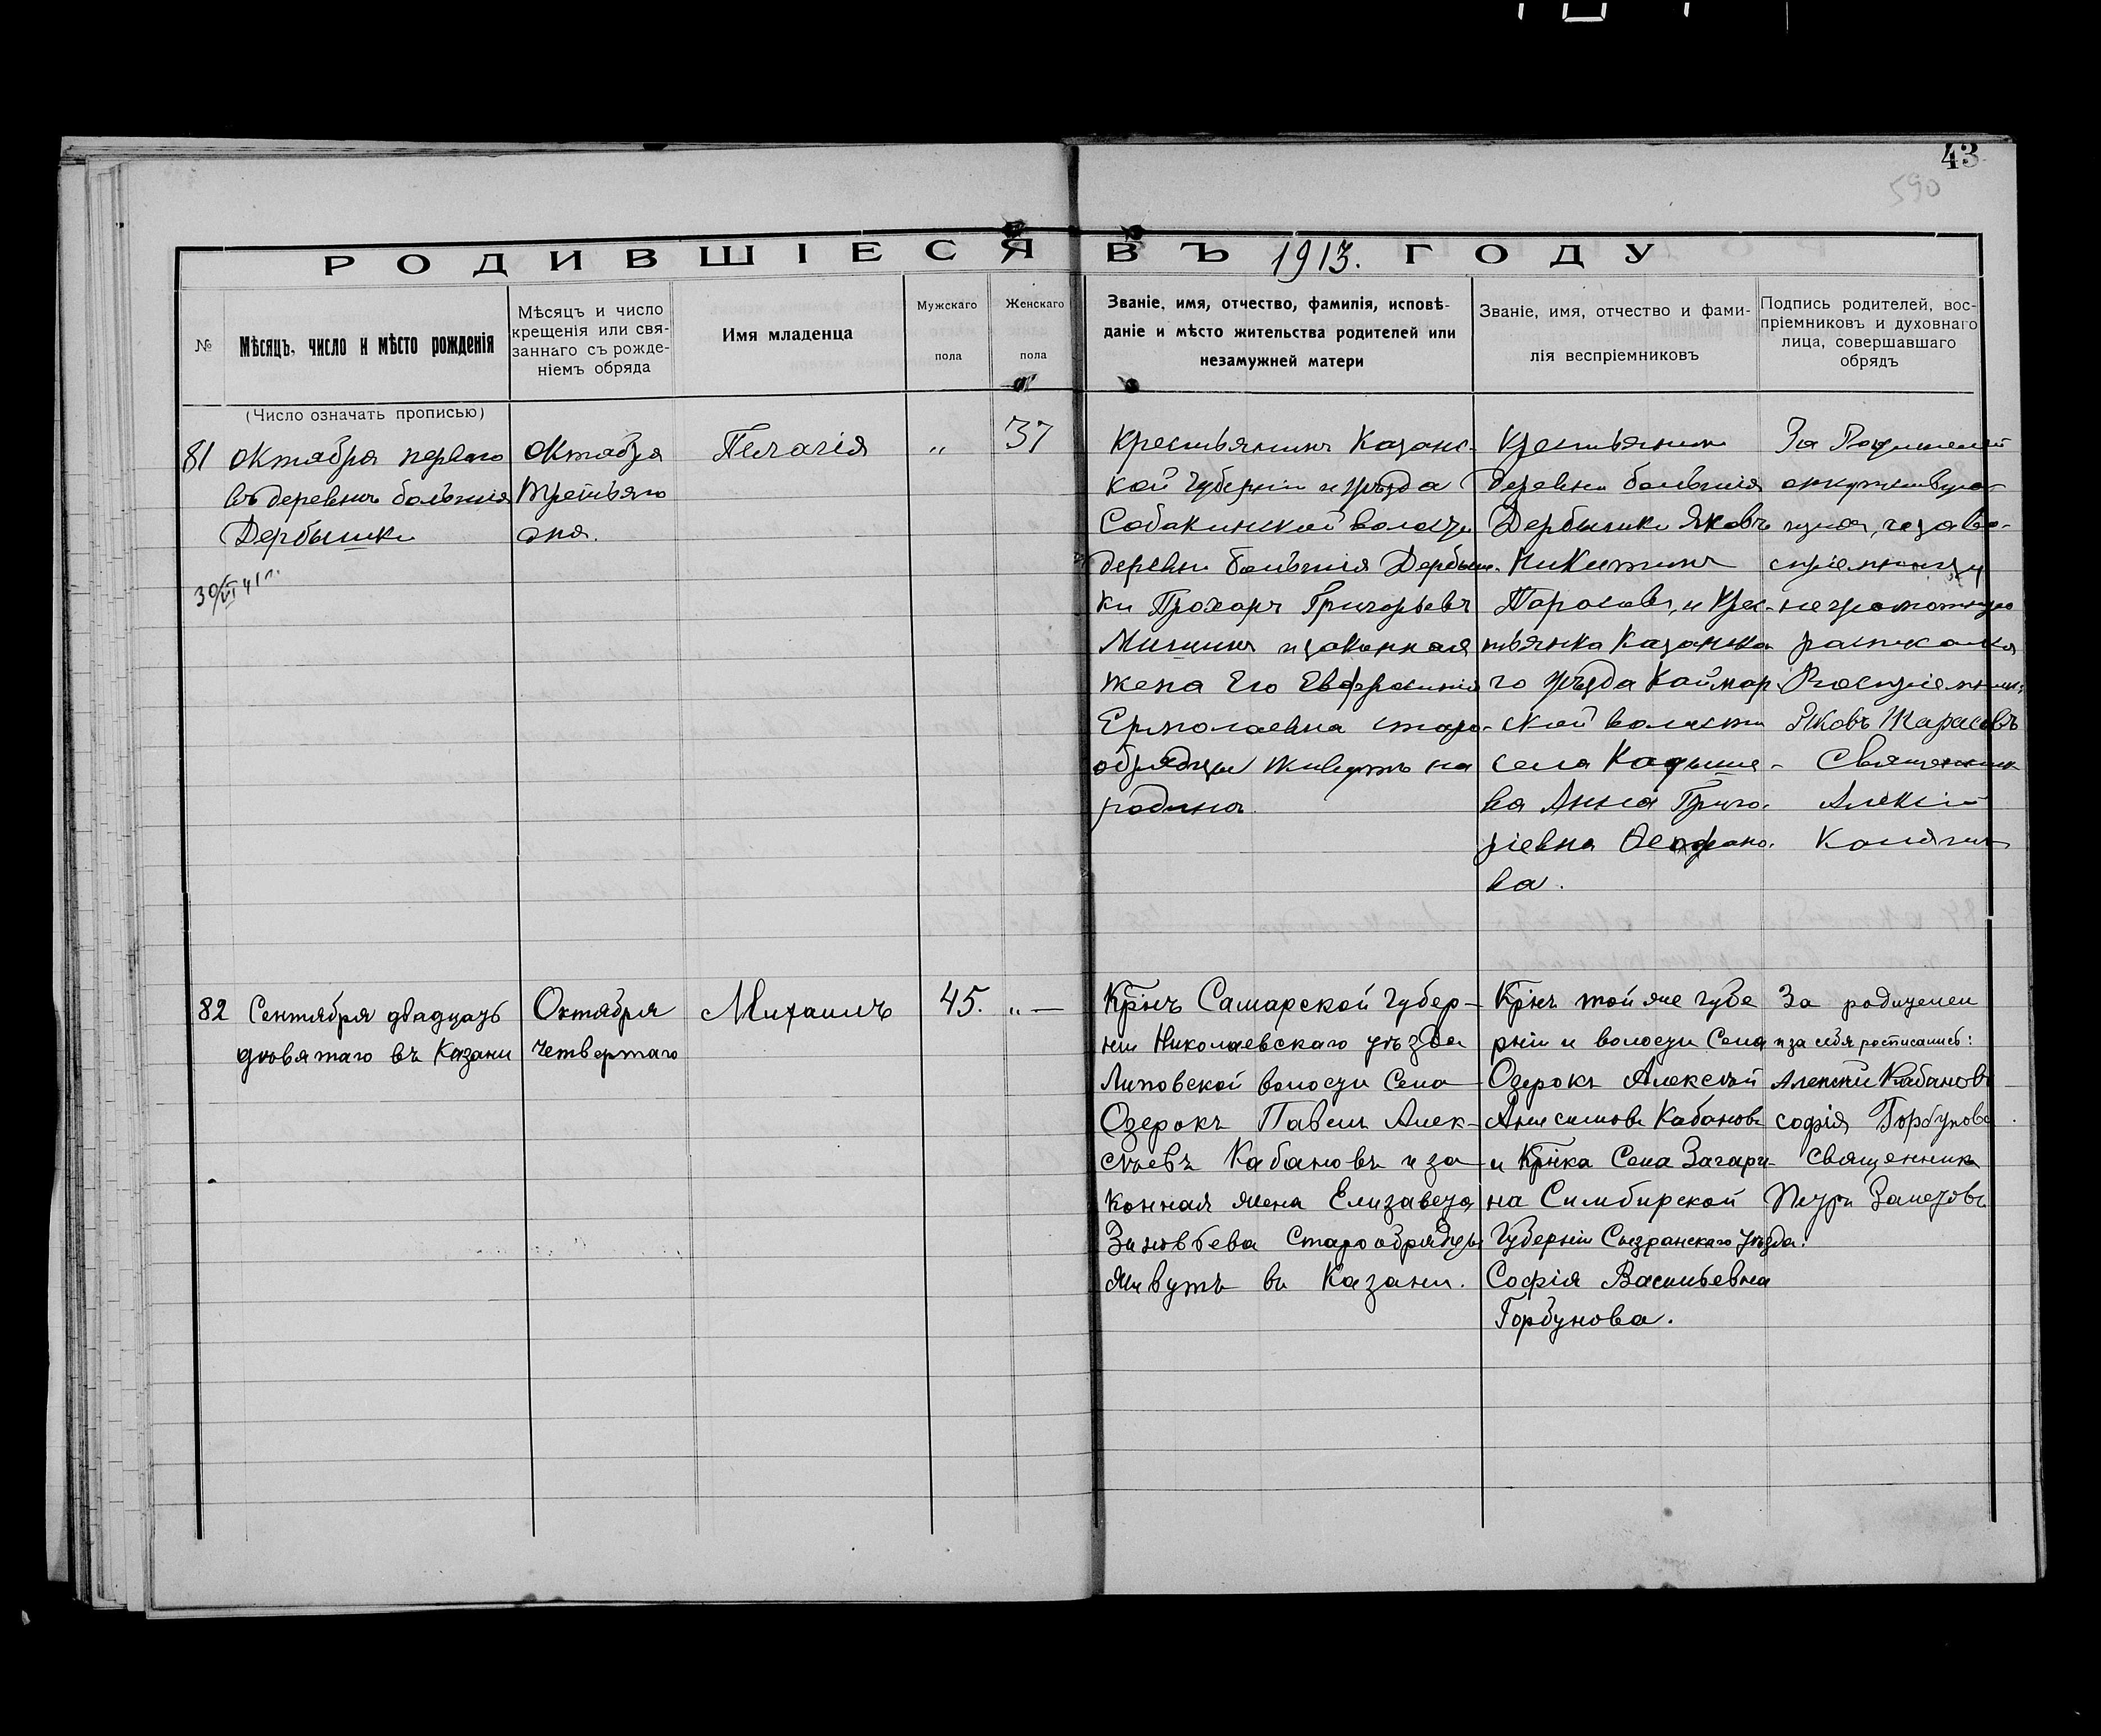 43
590
РОДИВШІЕСЯ ВЪ 1913. ГОДУ
№
Мѣсяцъ, число и мѣсто рожденія
Мѣсяцъ и число
крещенія или свя-
заннаго съ рожде-
ніемъ обряда
Имя младенца
Мужскаго
пола
Женскаго
пола
Званіе, имя, отчество, фамилія, исповѣ-
даніе и мѣсто жительства родителей или
незамужней матери
Званіе, имя, отчество и фами-
лія веспріемниковъ
Подпись родителей, вос-
пріемниковъ и духовнаго
лица, совершавшаго
обрядъ
(Число означать прописью)
81
Октября перваго
въ деревнѣ большія
Дербышки
30/VI 41 г.
Октября
третьяго
дня.
Пелагія
"
37
Крестьянинъ Казанс-
кой губерніи и уѣзда
Собакинской волости
деревни Большія Дербыш-
ки Прохоръ Григорьевъ
Мишинъ и законная
жена Его Евфросинія
Ермолаевна старо-
обрядцы живутъ на
родинѣ.
Крестьянинъ
деревни большія
Дербышки Яковъ
Никитинъ
Тарасовъ, и крес-
тьянка Казанска-
го уѣзда Каймар-
ской волости
села Кадыше-
ва Анна Григо-
ріевна Феофано-
ва.
За Родителей
спріемницу
неграмотную
Воспріемникъ
Яковъ Тарасовъ
Священникъ
Алексій
Калягин
82
Сентября двадцать
девятаго въ Казани
Октября
четвертаго
Михаилъ
45.
" —
Кр̅нъ Самарской губер-
ніи Николаевскаго уѣзда
Липовской волости Села
Озерокъ Павелъ Алек-
сѣевъ Кабановъ и за-
конная жена Елизавета
Зиновьева Старообрядцы
Живутъ въ Казани.
Кр̅нъ той же губе
рніи и волости Села
Озерокъ Алексѣй
Анисимовъ Кабановъ
и Кр̅нка Села Загари-
на Симбирской
Губерніи Сызранскаго уѣзда.
Софія Васильевна
Горбунова.
За родителей
и за себя росписались:
Алексѣй Кабановъ
софія Горбунова.
священникъ
Петръ Залетовъ